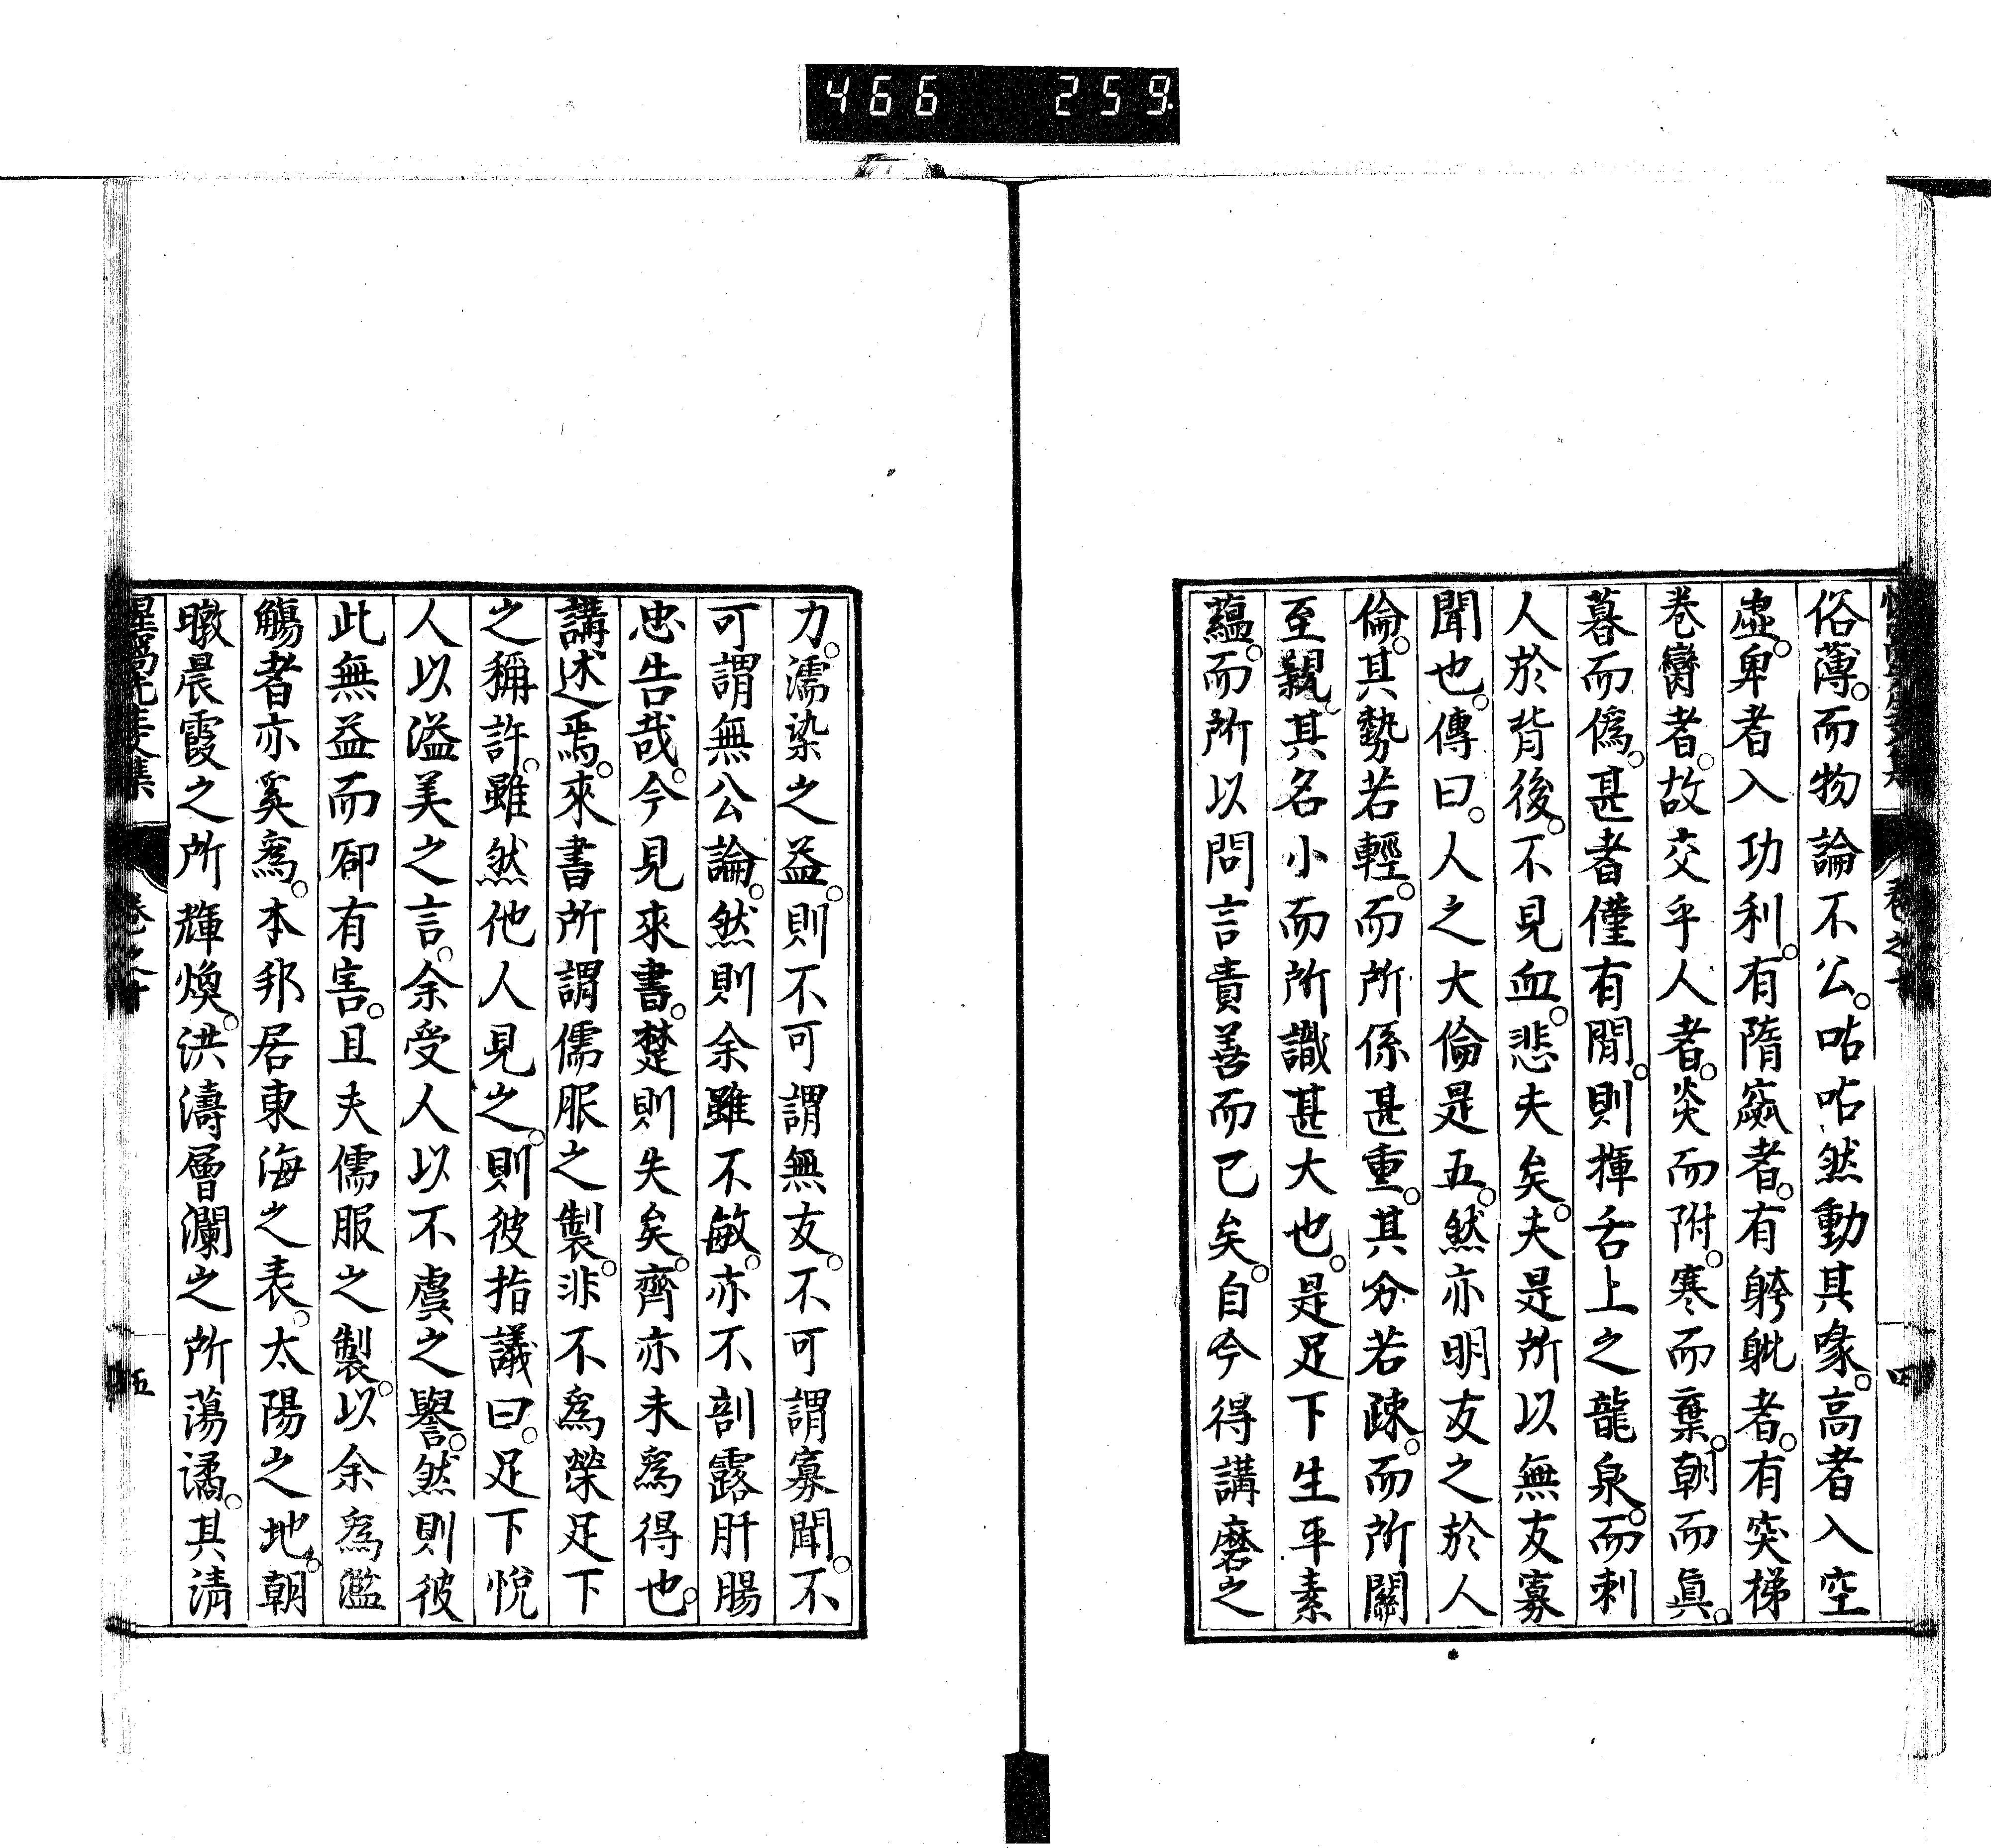 466 259
俗薄。而物論不公。呫呫然動其喙。高者入空
虛。卑者入功利。有隋窳者。有骻骴者。有突梯
卷臠者。故交乎人者。炎而附。寒而棄。朝而眞。
暮而僞。甚者僅有間。則揮舌上之龍泉。而刺
人於背後。不見血。悲夫矣。夫是所以無友寡
聞也。傳曰。人之大倫是五。然亦明友之於人
倫。其勢若輕。而所係甚重。其分若疎。而所關
至親。其名小而所識甚大也。是足下生平素
蘊。而所以問言責善而已矣。自今得講磨之
力。濡染之益。則不可謂無友。不可謂寡聞。不
可謂無公論。然則余雖不敏。亦不剖露肝腸
忠告哉。今見來書。楚則失矣。齊亦未爲得也。
講述焉。來書所謂儒服之製。非不爲榮足下
之稱許。雖然他人見之。則彼指議曰。足下悅
人以溢美之言。余受人以不虞之譽。然則彼
此無益而卻有害。且夫儒服之製。以余爲濫
觴者亦奚爲。本邦居東海之表。太陽之地。朝
暾晨霞之所輝煥。洪濤層瀾之所蕩潏。其淸
卷之十
五
卷之十
四